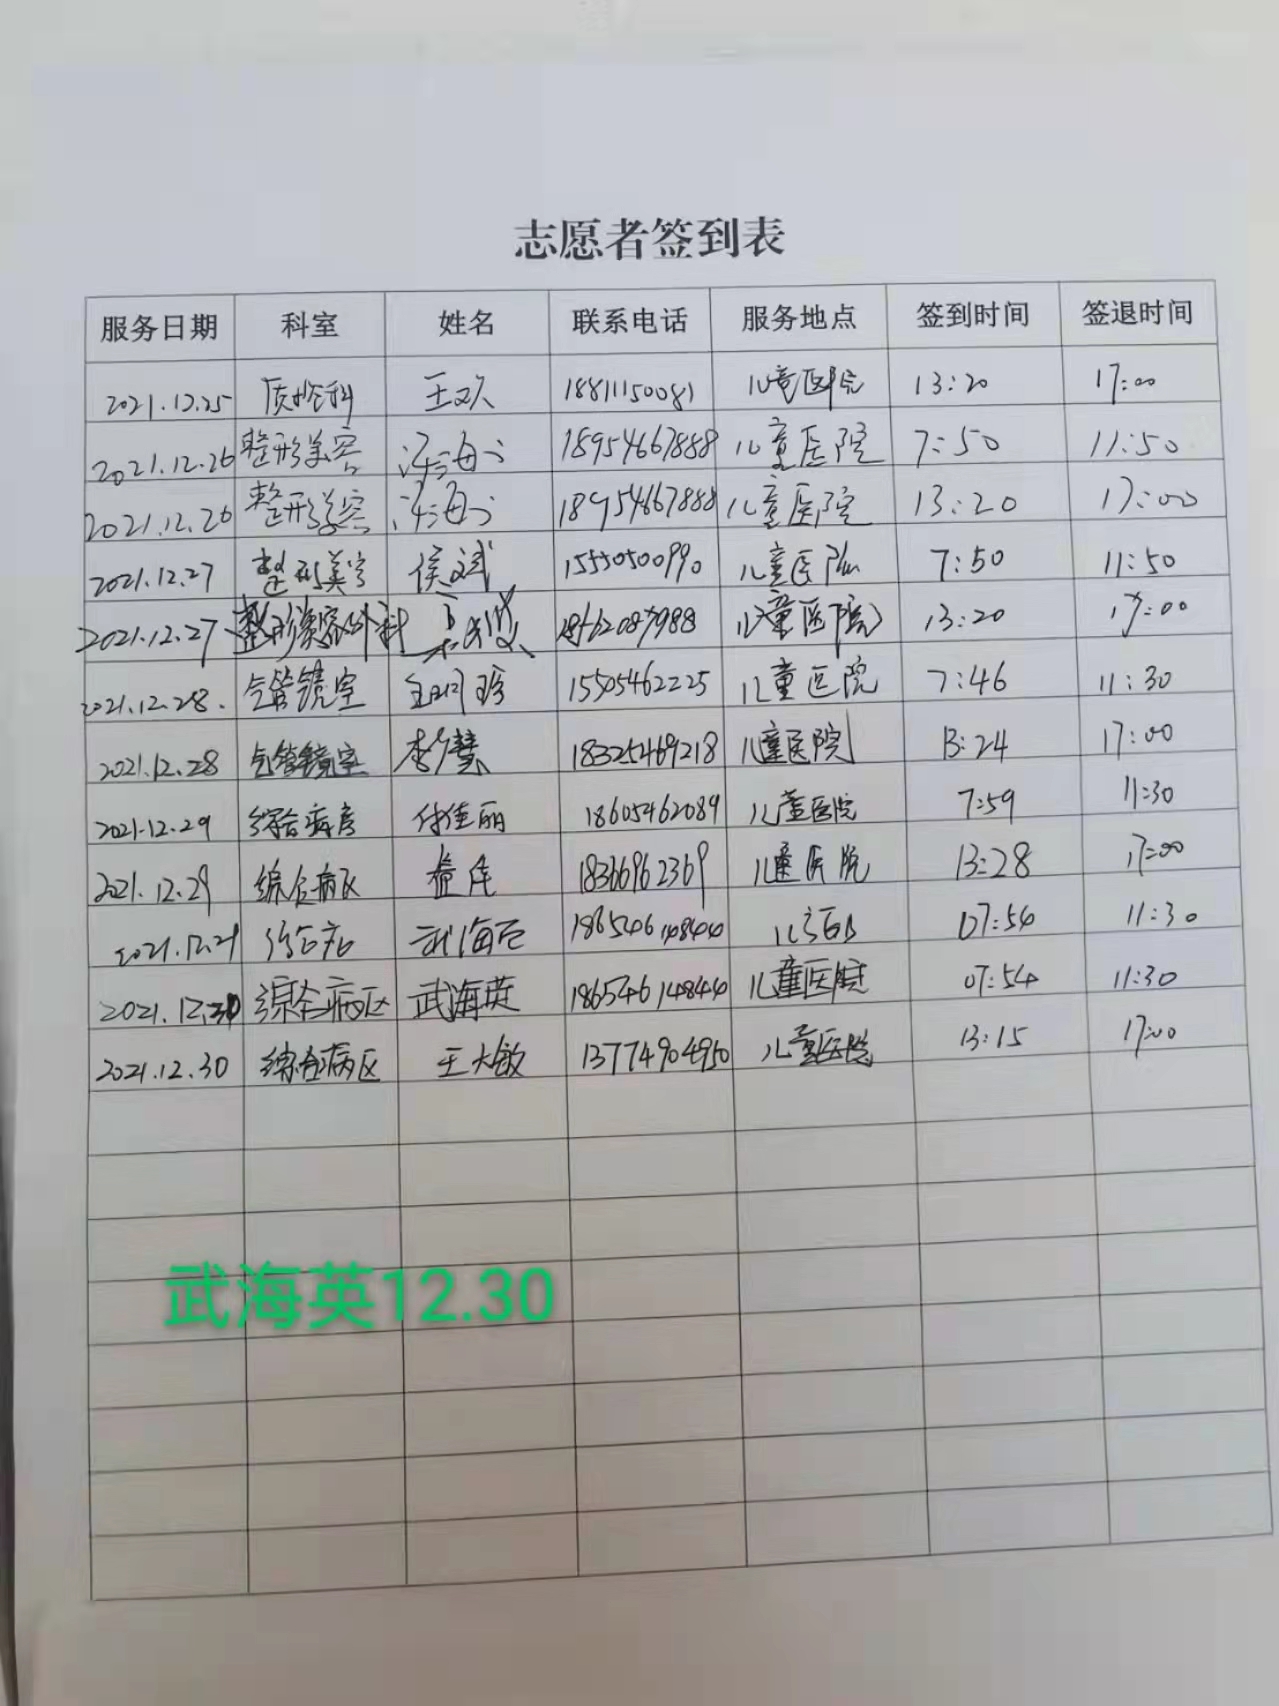 志愿者签到表
服务日期 科室 姓名 联系电话 服务地点 签到时间 签退时间
2021.12.25 质控科 王 18811150081 儿童医院 13:20 17:00
2021.12.26 整形美容 海 18954667888 儿童医院 7:50 11:50
2021.12.26 整形美容 海 18954667888 儿童医院 13:20 17:00
2021.12.27 整形美容 侯斌 15550500990 儿童医院 7:50 11:50
2021.12.27 整形美容外科 儿童医院 13:20 17:00
2021.12.28. 气管镜室 15505462225 儿童医院 7:46 11:30
2021.12.28 气管镜室 李慧 18325469218 儿童医院 13:24 17:00
2021.12.29 综合病房 佳丽 18605462089 儿童医院 7:59 11:30
2021.12.29 综合病区 18366962369 儿童医院 13:28 17:00
2021.12.29 武海 186546148444 07:54 11:30
2021.12.30 综合病区 武海英 186546148444 儿童医院 07:54 11:30
2021.12.30 综合病区 王大敏 13774904950 儿童医院 13:15 17:00
武海英12.30